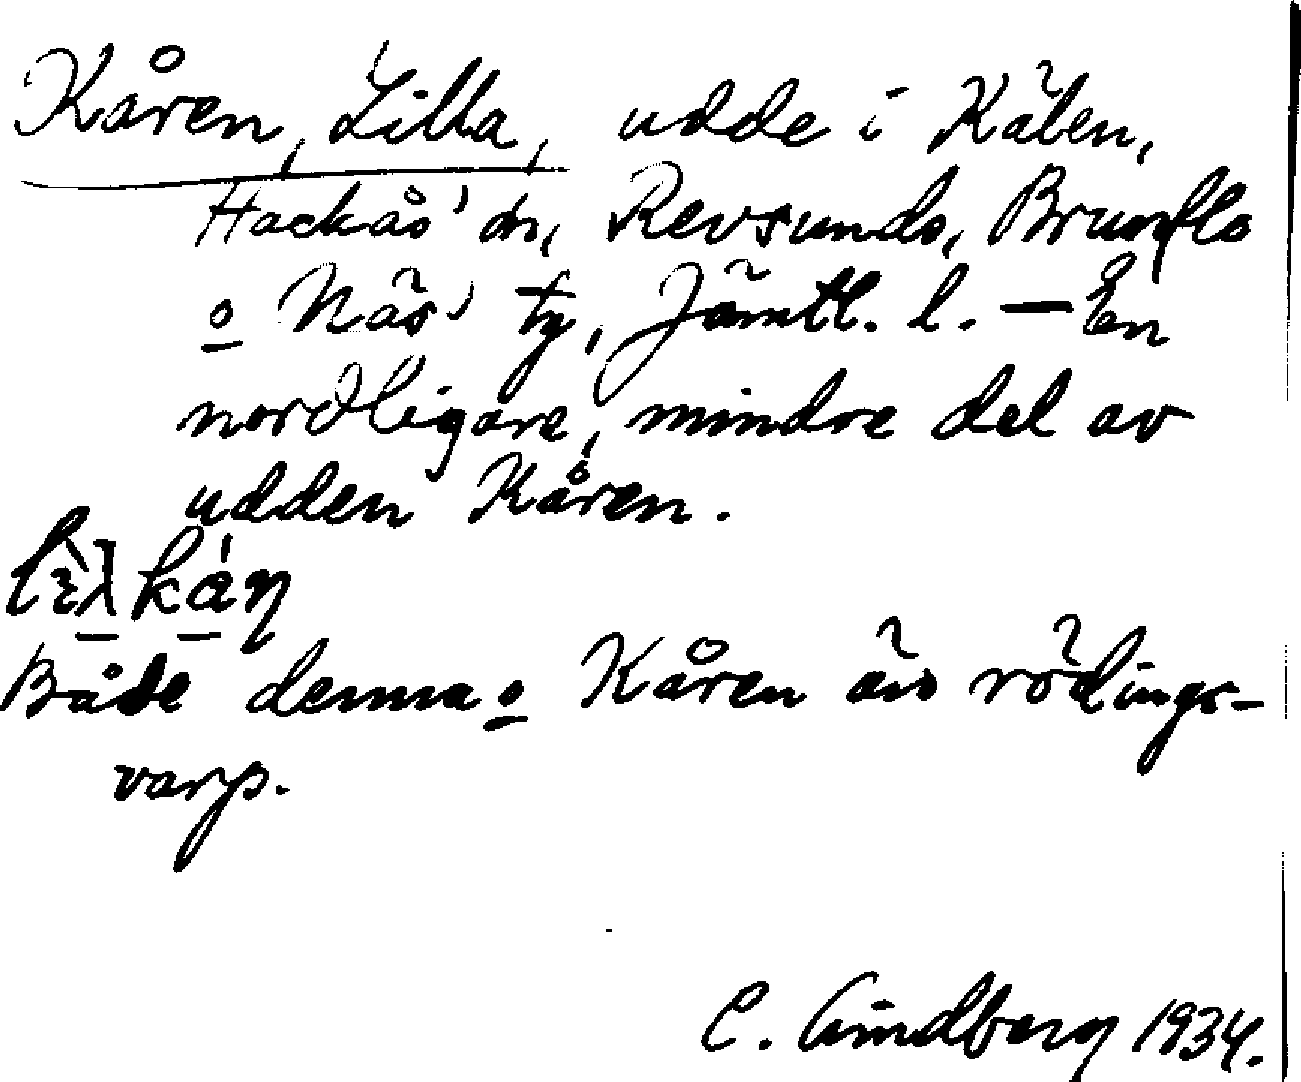 Kåren, Lilla, udde i Kälen,
Hackås' sn, Revsunds, Brunflo
o Näs' tg, Jämtl. l. — En
nordligare, mindre del av
udden Kåren.
Både denna o Kåren äro rödings-
varp.
C. Lindberg 1934.